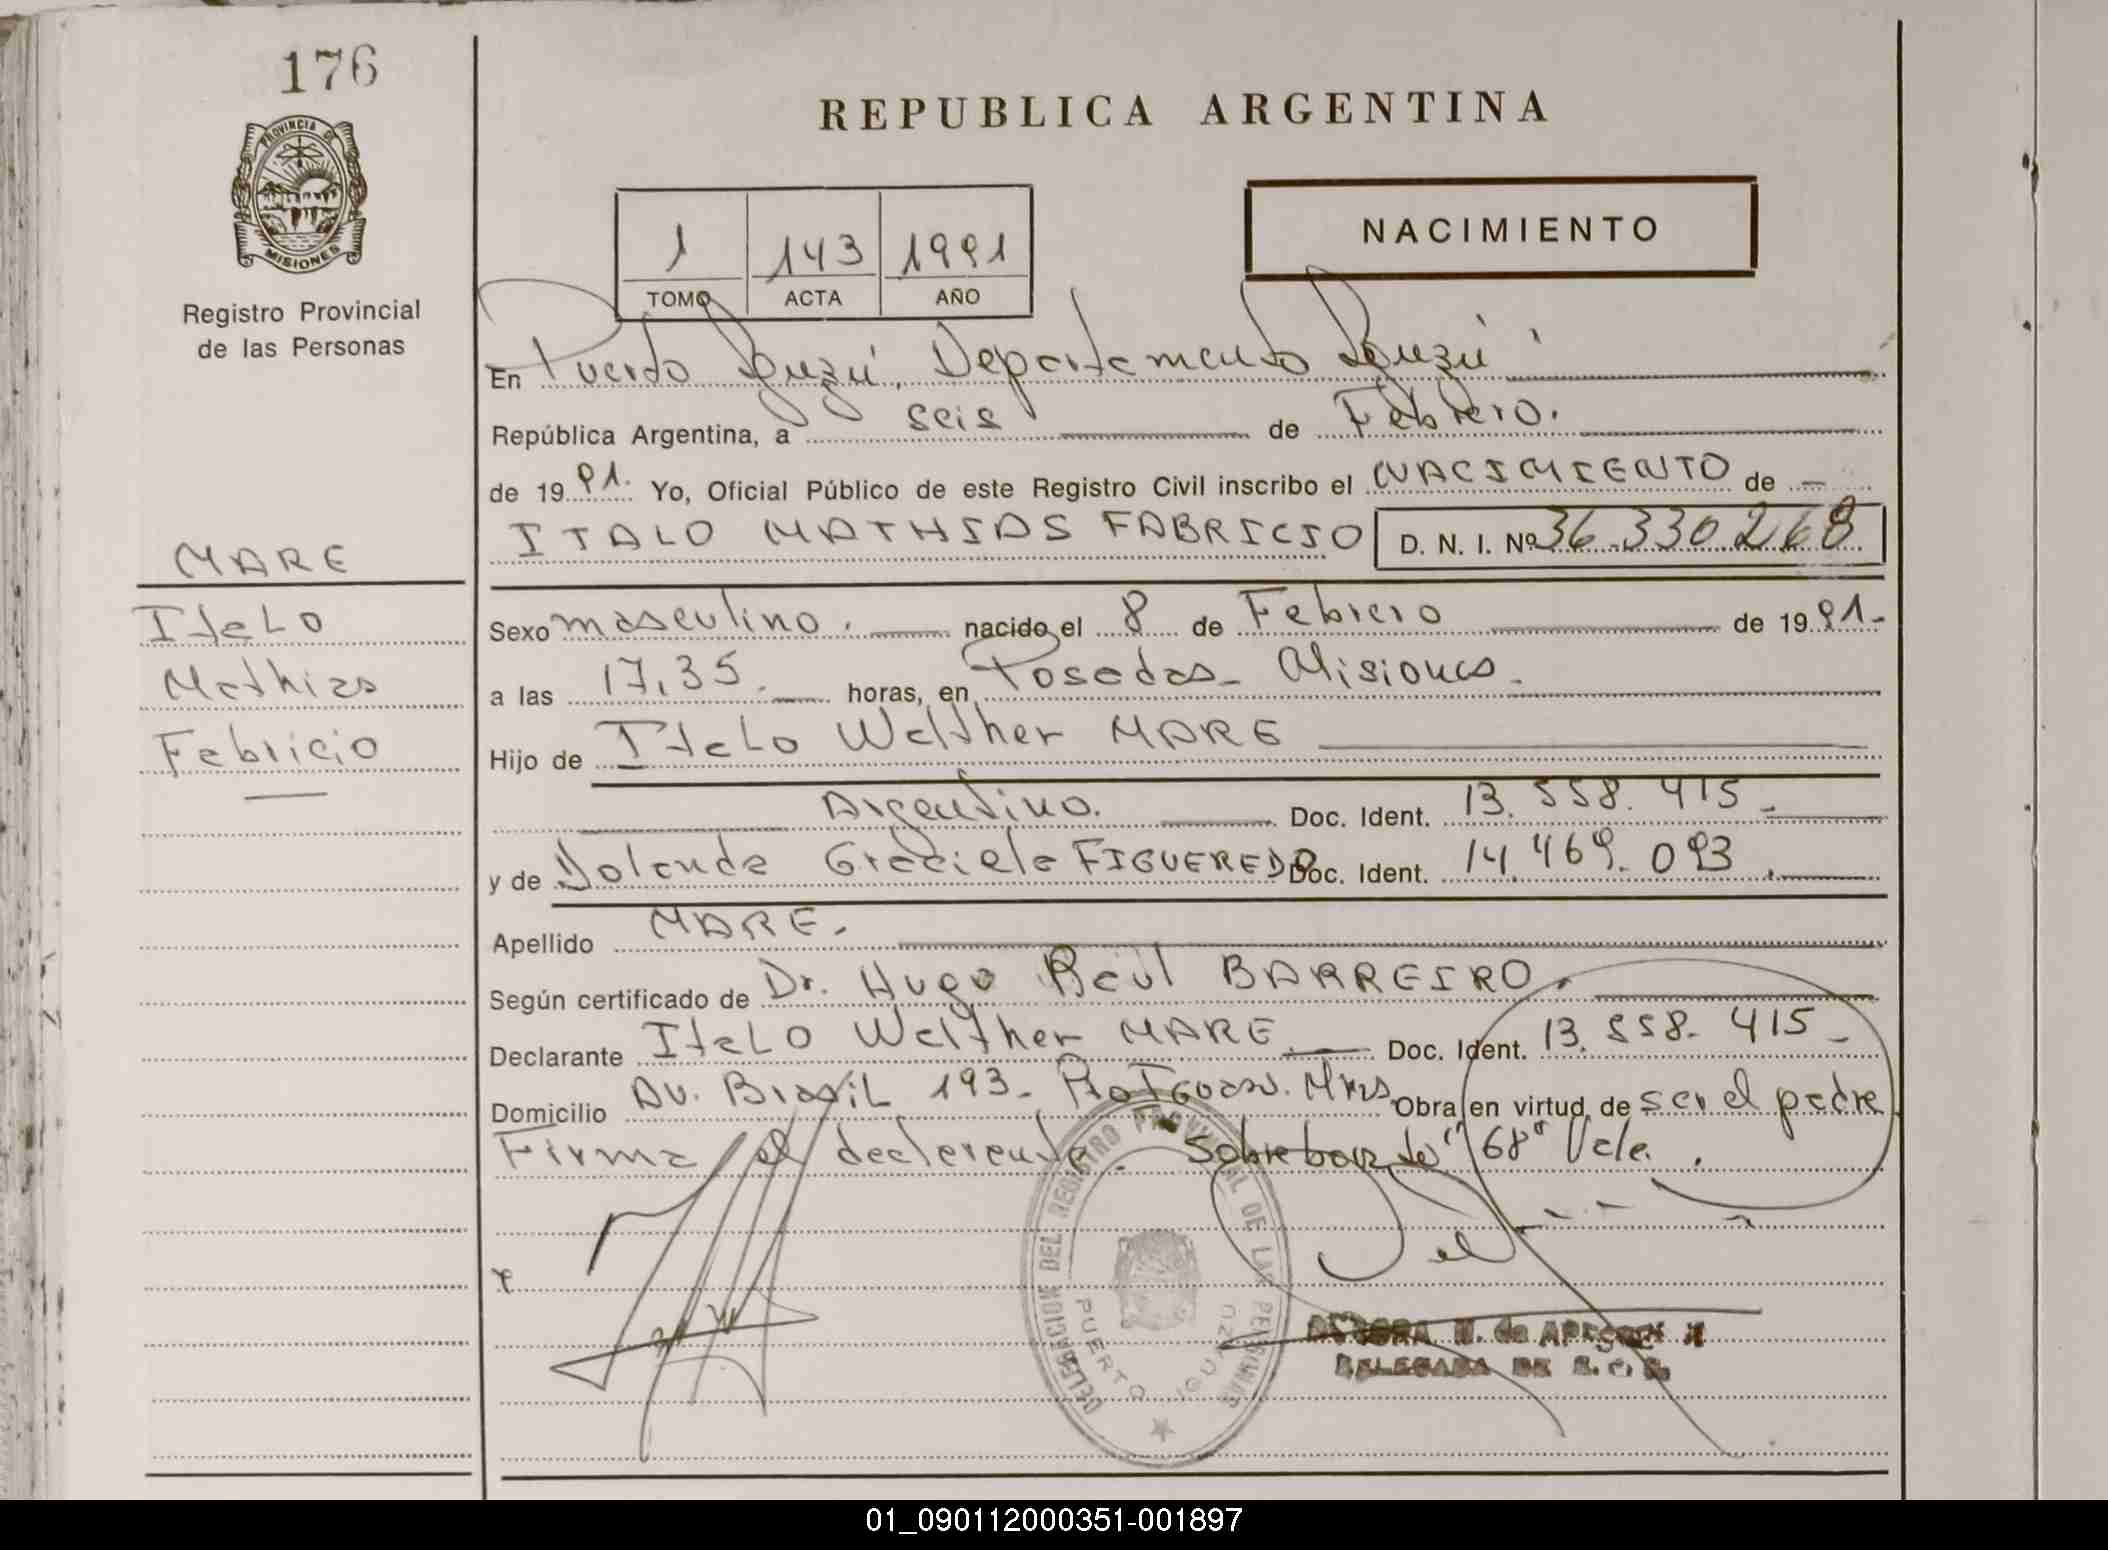 176
PROVINCIA D
MISIONES
Registro Provincial
de las Personas
REPUBLICA ARGENTINA
1 143 1991
TOMO ACTA AÑO
NACIMIENTO
En Puerto Iguazú, Departamento Iguazú
República Argentina, a seis de Febrero.
de 1991. Yo, Oficial Público de este Registro Civil inscribo el NACIMIENTO de
ITALO MATHIAS FABRICIO D. N. I. Nº 36.330.268
MARE
Italo
Mathias
Fabricio
Sexo masculino. nacido el 8 de Febrero de 1991.-
a las 17,35. horas, en Posadas - Misiones.
Hijo de Italo Walther MARE
Argentino. Doc. Ident. 13.558.415-
y de Yolanda Graciela FIGUEREDO Doc. Ident. 14.469.093.
Apellido MARE.
Según certificado de Dr. Hugo Raúl BARREIRO.
Declarante Italo Walther MARE Doc. Ident. 13.558.415-
Domicilio Av. Brasil 193- Obra en virtud de ser el padre
Firma el declarante. Sobreborrado "68" Vale.
DELEGACION DEL REGISTRO PROVINCIAL DE LAS PERSONAS
PUERTO IGUAZU
DELEGADA DE
01_090112000351-001897